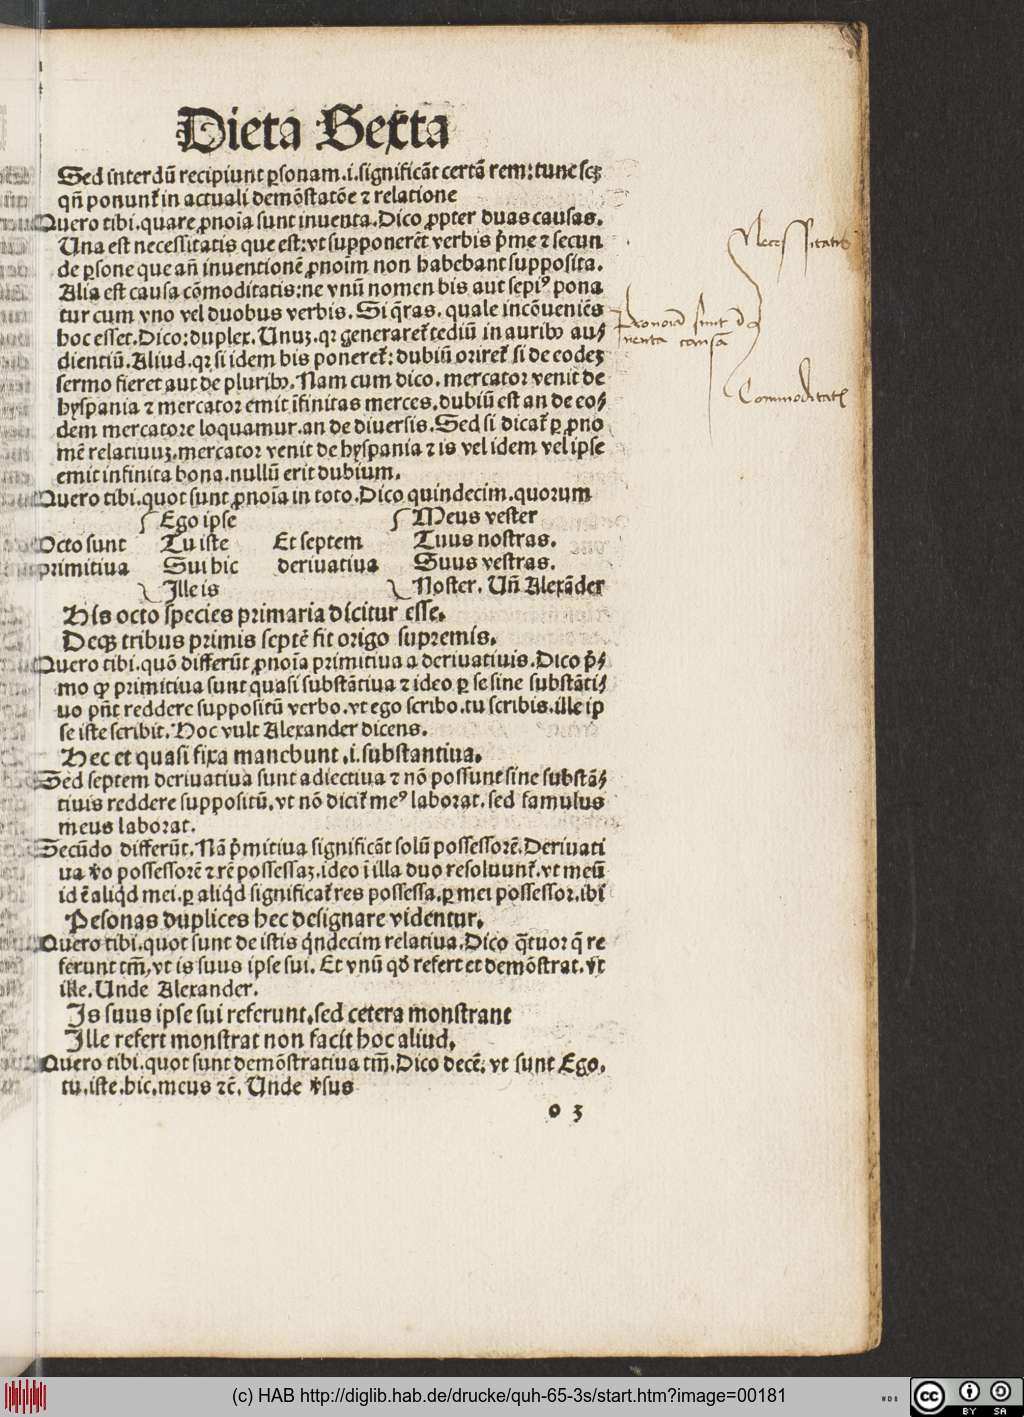 Dieta Sexta
Sed interdū recipiunt ꝑsonam.i.significāt certā rem: tunc scꝫ
qn̄ ponunt᷑ in actuali demōstratōe ⁊ relatione
Quero tibi.quare ꝓnoīa sunt inuenta.Dico ꝓpter duas causas.
Una est necessitatis que est: vt supponerēt verbis p̄me ⁊ secun
de ꝑsone que an̄ inuentionē ꝓnoīm non habebant supposita.
Alia est causa cōmoditatis: ne vnū nomen bis aut sepiꝰ pona
tur cum vno vel duobus verbis. Si q̄ras. quale incōueniēs
hoc esset. Dico: duplex. Unuꝫ. qꝛ generaret᷑ tediū in auribꝫ au⸗
dientiū. Aliud. qꝛ si idem bis poneret᷑: dubiū oriret᷑ si de eodeꝫ
sermo fieret aut de pluribꝫ. Nam cum dico. mercator venit de
hyspania ⁊ mercator emit īfinitas merces. dubiū est an de eo⸗
dem mercatore loquamur. an de diuersis. Sed si dicat᷑ ꝑ ꝓno
mē relatiuuꝫ. mercator venit de hyspania ⁊ is vel idem vel ipse
emit infinita bona. nullū erit dubium.
Quero tibi.quot sunt ꝓnoīa in toto.Dico quindecim.quorum
Ego ipse Meus vester
Octo sunt Tu iste Et septem Tuus nostras.
primitiua Sui hic deriuatiua Suus vestras.
Ille is Noster. Un̄ Alexāder
His octo species primaria dicitur esse.
Deqꝫ tribus primis septē fit origo supremis.
Quero tibi.quō differūt ꝓnoīa primitiua a deriuatiuis.Dico p̄⸗
mo ꝙ primitiua sunt quasi substātiua ⁊ ideo ꝑ se sine substāti⸗
uo pn̄t reddere suppositū verbo. vt ego scribo. tu scribis. ille ip
se iste scribit. Hoc vult Alexander dicens.
Hec et quasi fixa manebunt .i. substantiua.
Sed septem deriuatiua sunt adiectiua ⁊ nō possunt sine substā⸗
tiuis reddere suppositū. vt nō dicit᷑ meꝰ laborat. sed famulus
meus laborat.
Secūdo differūt. Nā p̄mitiua significāt solū possessorē. Deriuati
ua v̓o possessorē ⁊ rē possessaꝫ. ideo ī illa duo resoluunt᷑. vt meū
id ē aliqd̄ mei. ꝑ aliqd̄ significat᷑ res possessa. ꝑ mei possessor. ibi
Pesonas duplices hec designare videntur.
Quero tibi.quot sunt de istis qͥndecim relatiua.Dico q̄tuor q̄ re
ferunt tm̄, vt is suus ipse sui. Et vnū qd̓ refert et demōstrat. vt
ille. Unde Alexander.
Is suus ipse sui referunt, sed cetera monstrant
Ille refert monstrat non facit hoc aliud.
Quero tibi.quot sunt demōstratiua tm̄.Dico decē. vt sunt Ego.
tu. iste. hic. meus ⁊c̄. Unde v̓sus
o 3
Necessitatis
sunt
causa
Commoditatis
(c) HAB http://diglib.hab.de/drucke/quh-65-3s/start.htm?image=00181
WDB
cc BY SA